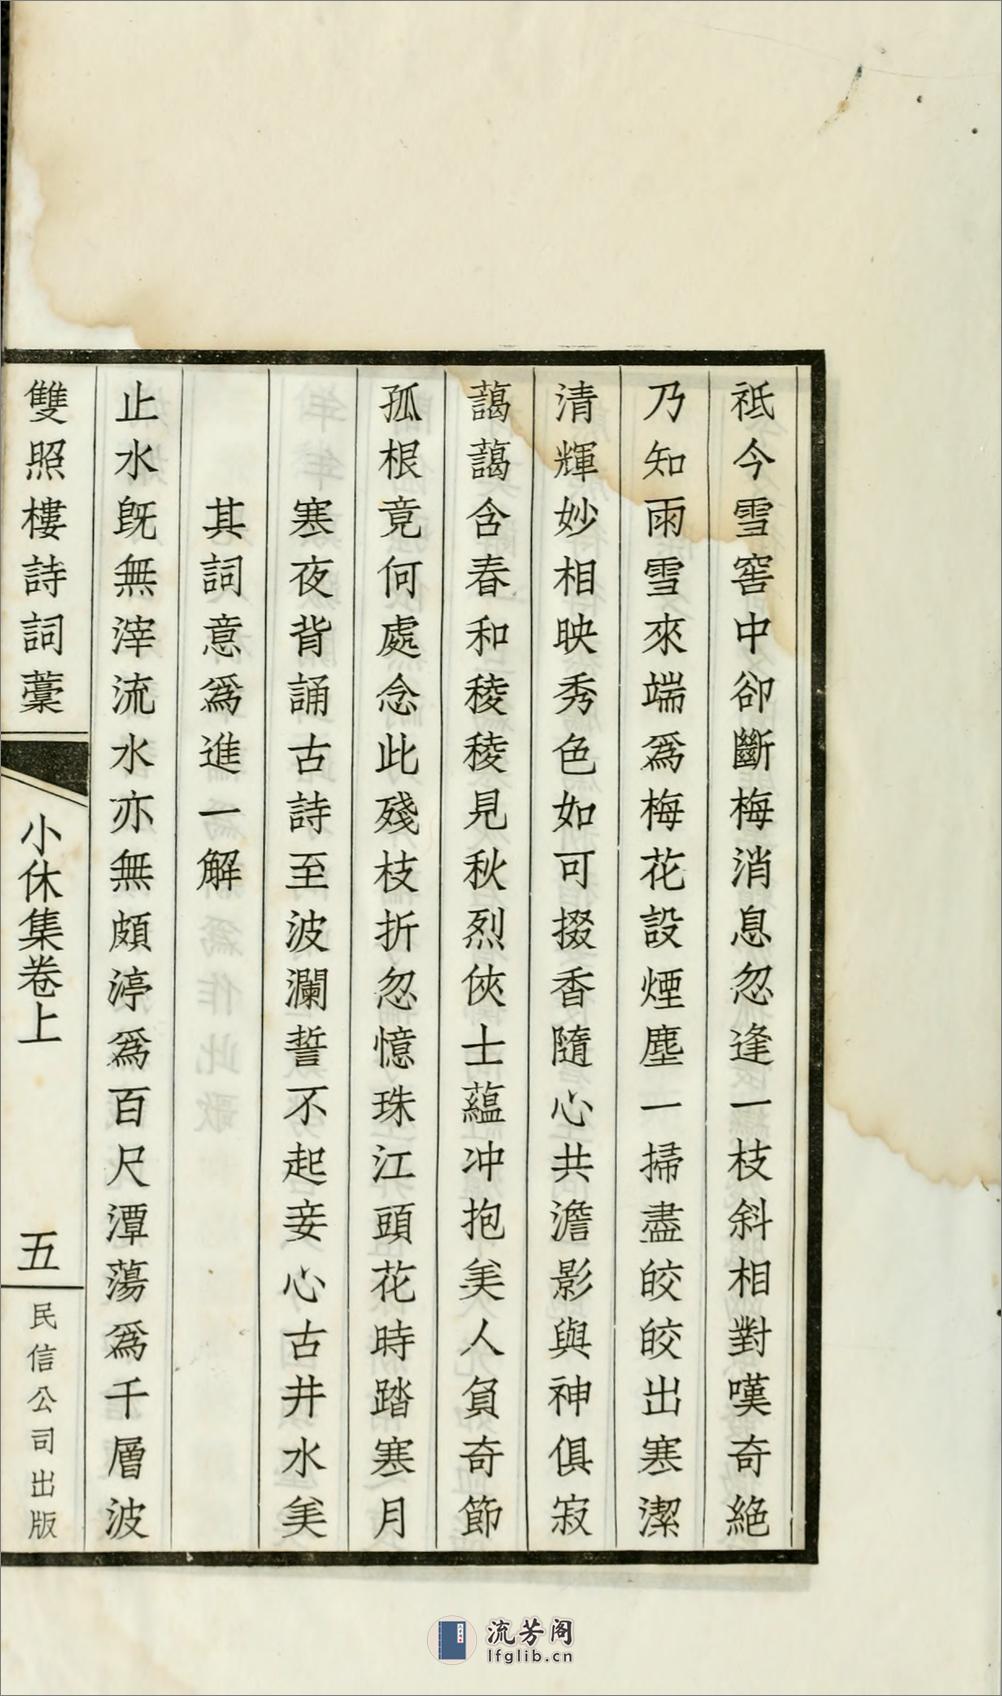 祗今雪窖中卻斷梅消息忽逢一枝斜相對嘆奇絕
乃知雨雪來端爲梅花設煙塵一掃盡皎皎出寒潔
清輝妙相映秀色如可掇香隨心共澹影與神俱寂
藹藹含春和稜稜見秋烈俠士蘊冲抱美人負奇節
孤根竟何處念此殘枝折忽憶珠江頭花時踏寒月
寒夜背誦古詩至波瀾誓不起妾心古井水美
其詞意爲進一解
止水旣無滓流水亦無頗渟爲百尺潭蕩爲千層波
雙照樓詩詞藳
小休集卷上
五
民信公司出版
流芳阁
lfglib.cn